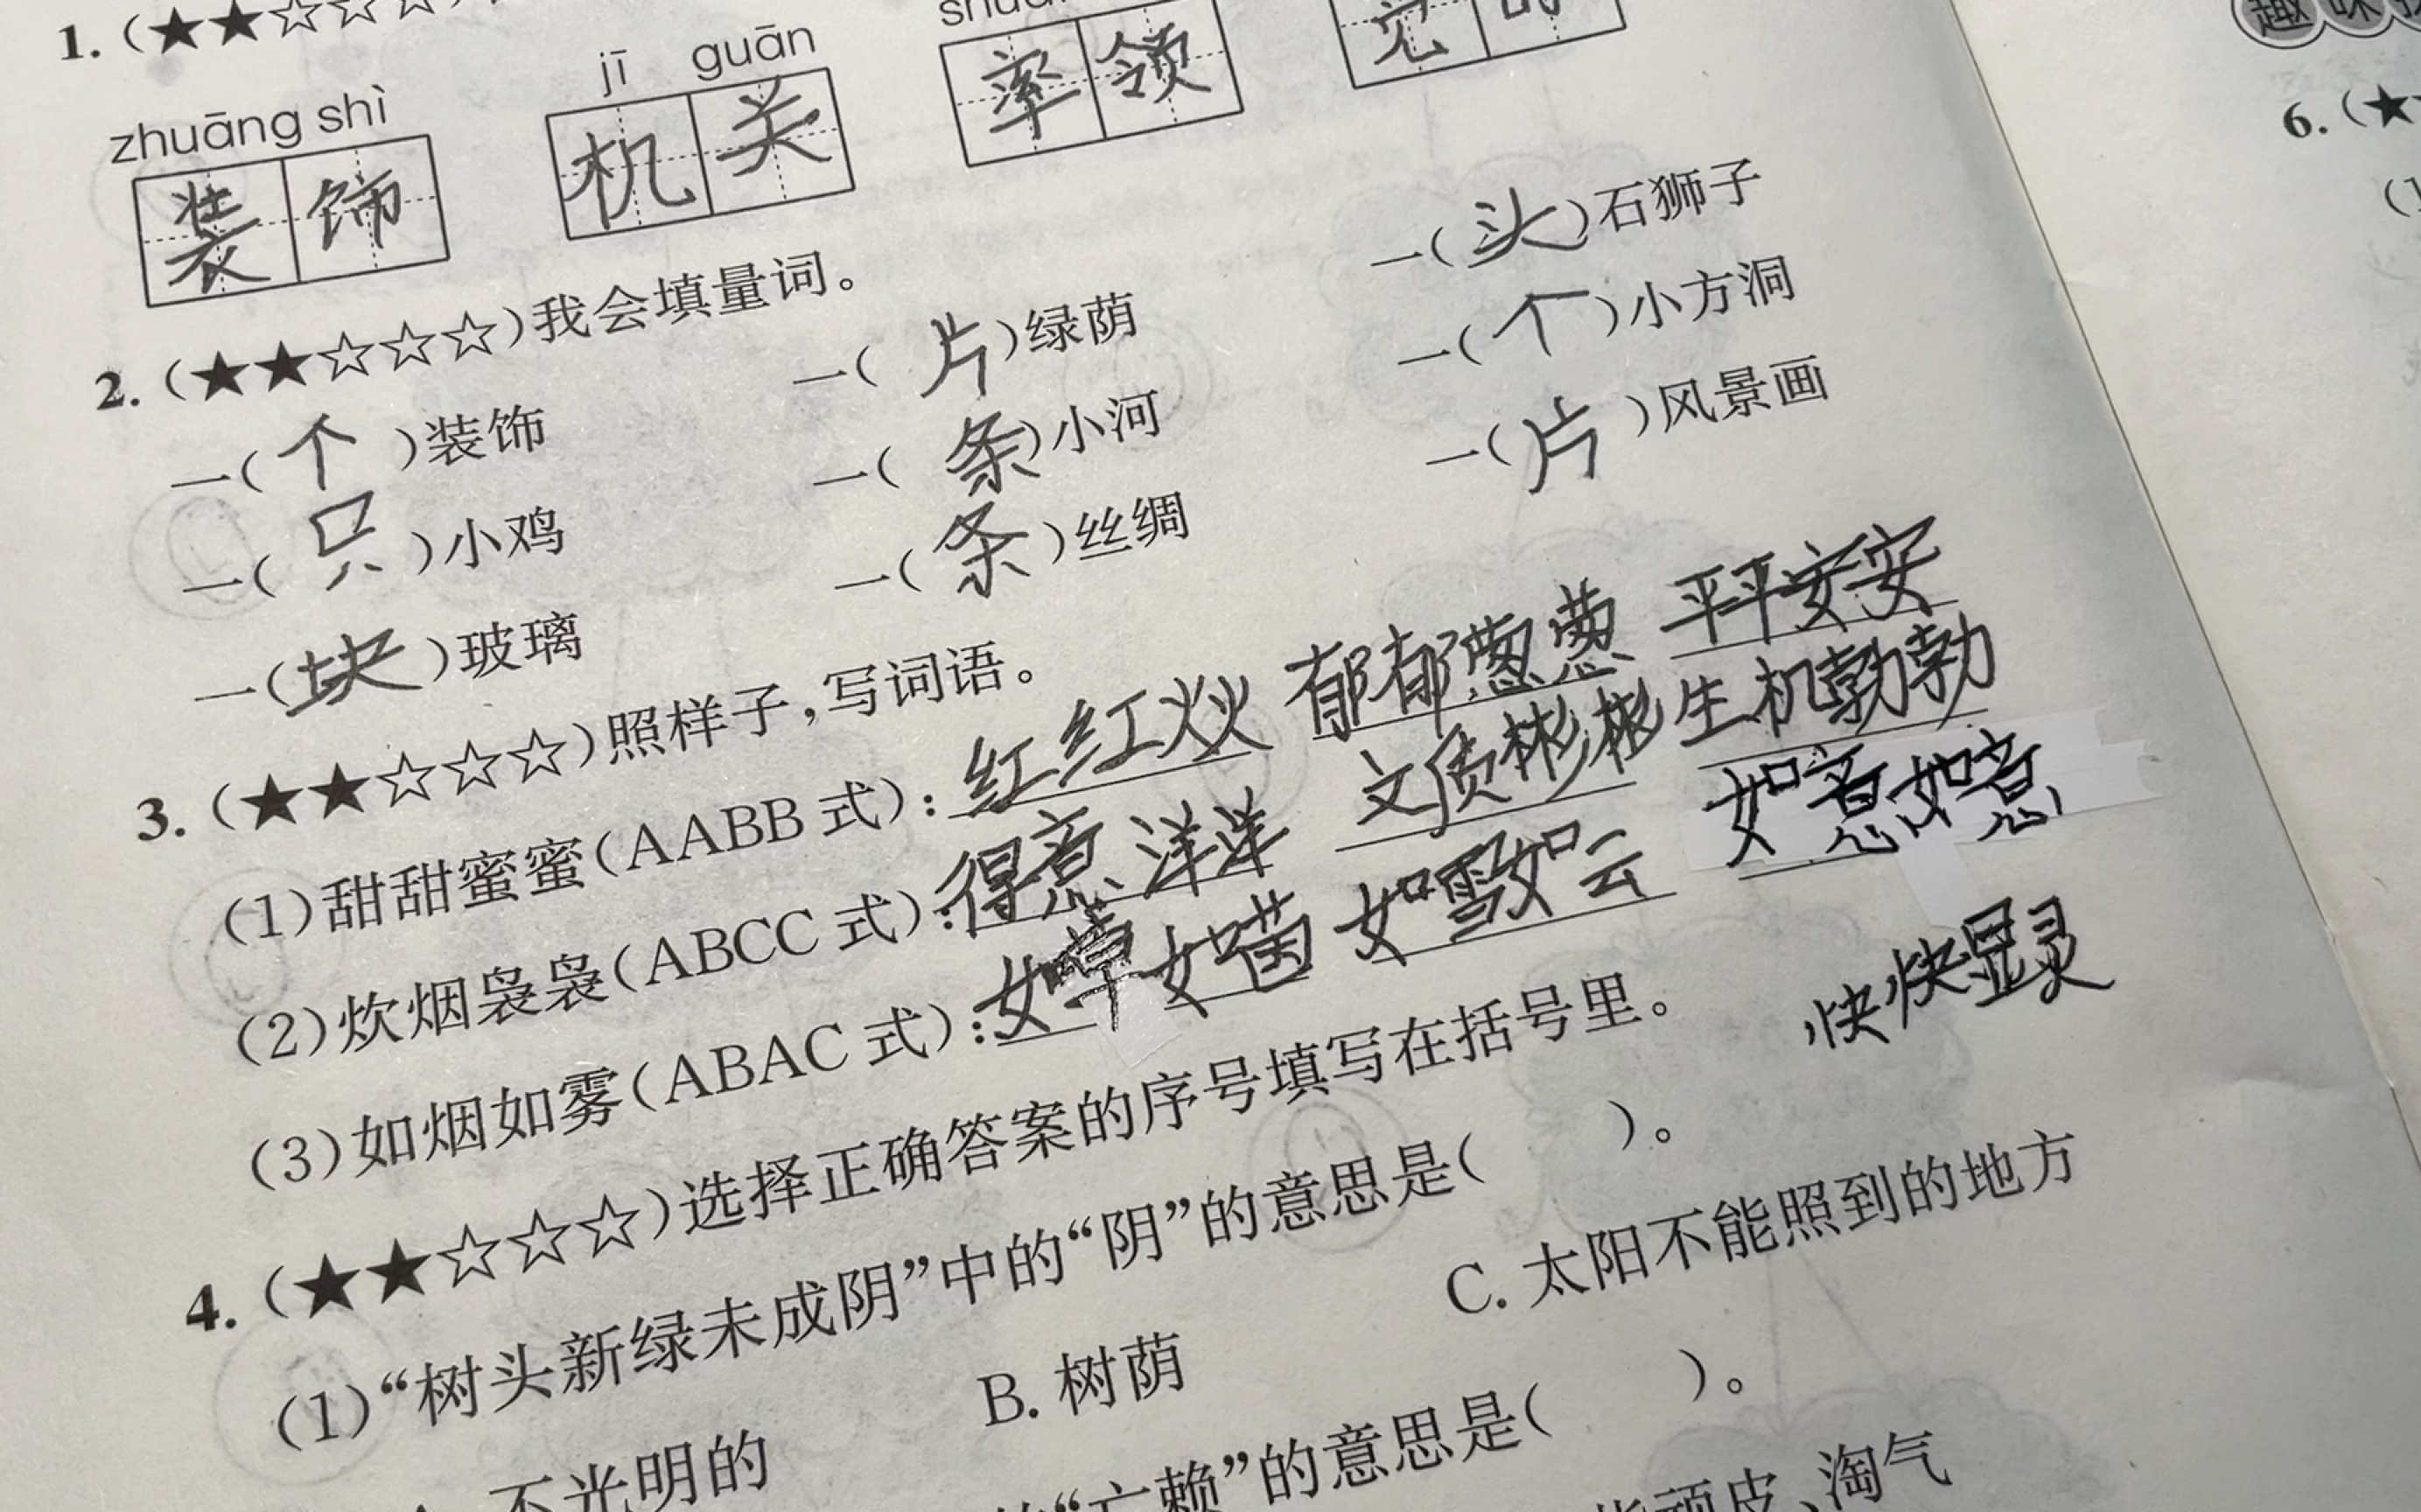 1.(★★☆☆☆)
jī guān
zhuāng shì
装饰 机关 率领
2.(★★☆☆☆)我会填量词。
一(个)装饰 一(片)绿荫 一(头)石狮子
一(只)小鸡 一(条)小河 一(个)小方洞
一(块)玻璃 一(条)丝绸 一(片)风景画
3.(★★☆☆☆)照样子,写词语。
(1)甜甜蜜蜜(AABB式):红红火火 郁郁葱葱 平平安安
(2)炊烟袅袅(ABCC式):得意洋洋 文质彬彬 生机勃勃
(3)如烟如雾(ABAC式):如草如菌 如雪如云 如意如意
快快显灵
4.(★★☆☆☆)选择正确答案的序号填写在括号里。
(1)“树头新绿未成阴”中的“阴”的意思是( )。
不光明的 B.树荫 C.太阳不能照到的地方
“亡赖”的意思是( )。
顽皮、淘气
趣味
6.(★